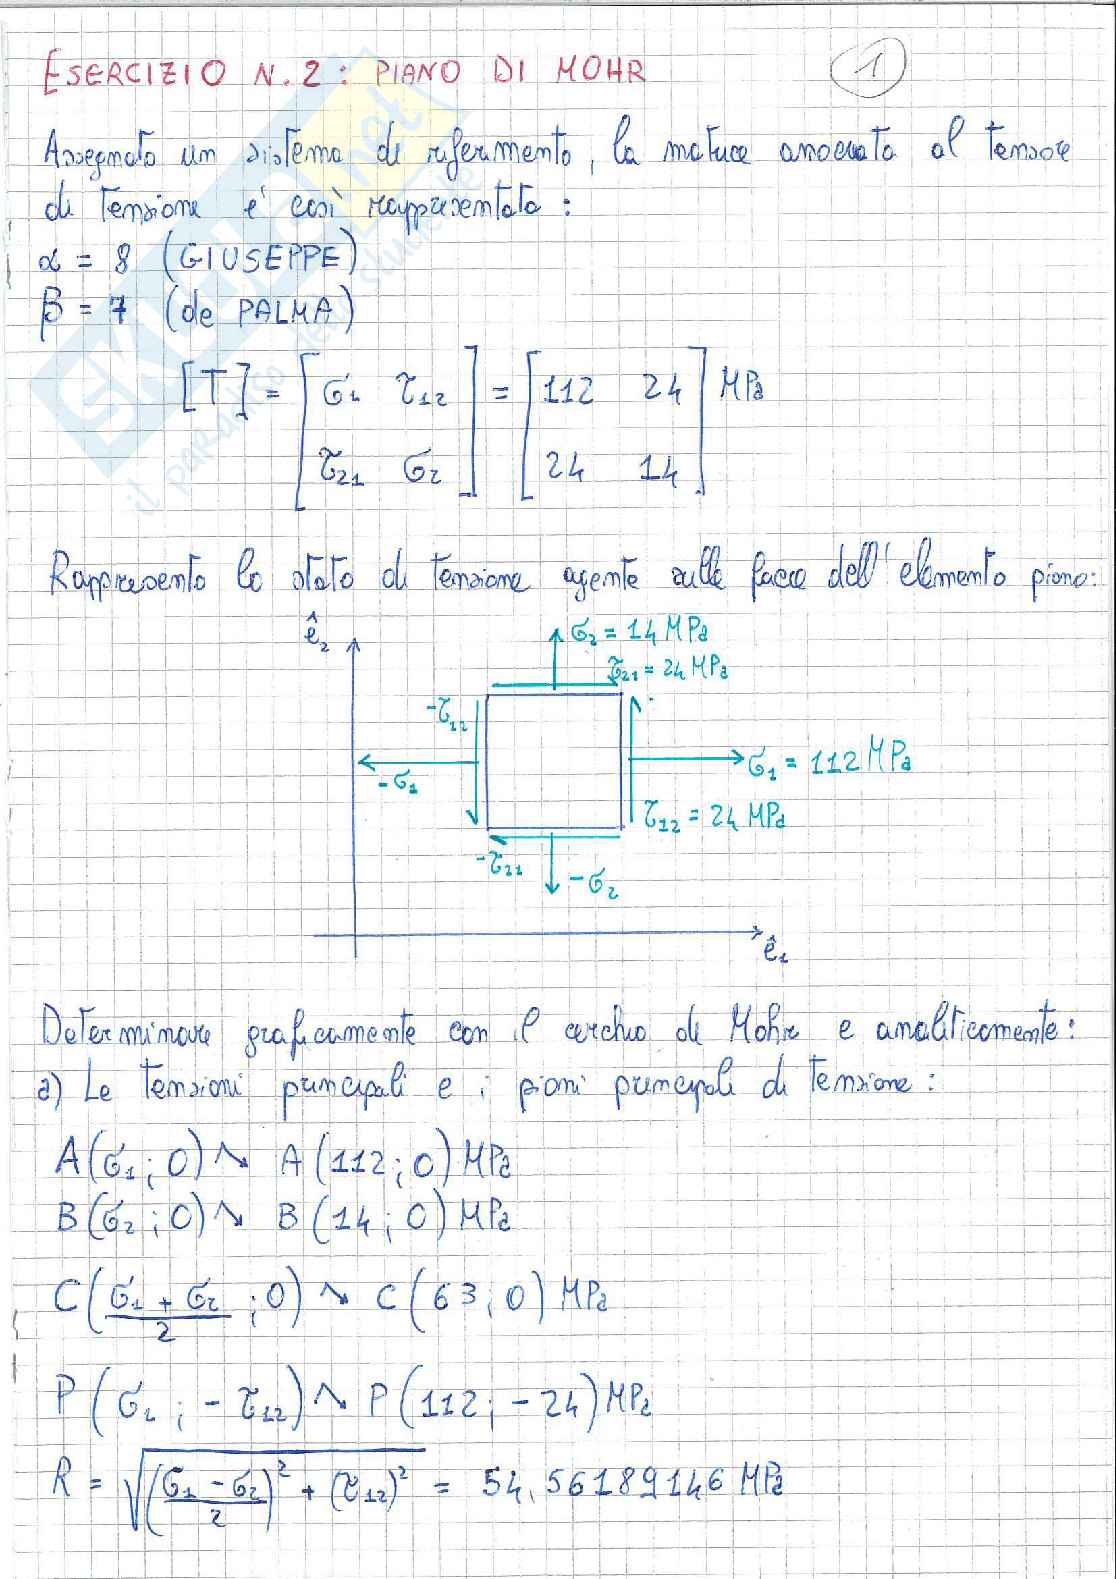 ESERCIZIO N.2: PIANO DI MOHR
1
Assegnato un sistema di riferimento, la matrice associata al tensore
di tensione è così rappresentata:
α = 8 (GIUSEPPE)
β = 7 (de PALMA)
[T] = [σ1 τ12 = [112 24 ] MPa
τ21 σ2] 24 14
Rappresento lo stato di tensione agente sulle facce dell'elemento piano:
ê2
σ2 = 14 MPa
τ21 = 24 MPa
-τ12
σ1 = 112 MPa
-σ1
τ12 = 24 MPa
-τ21
-σ2
ê1
Determinare graficamente con il cerchio di Mohr e analiticamente:
a) Le tensioni principali e i piani principali di tensione:
A(σ1; 0) ↘ A(112; 0) MPa
B(σ2; 0) ↘ B(14; 0) MPa
C(σ1 + σ2 / 2 ; 0) ↘ C(63; 0) MPa
P(σ1 ; -τ12) ↘ P(112; -24) MPa
R = √((σ1 - σ2 / 2)² + (τ12)²) = 54,56189146 MPa
SKUOLA.net
il paradiso dello studente